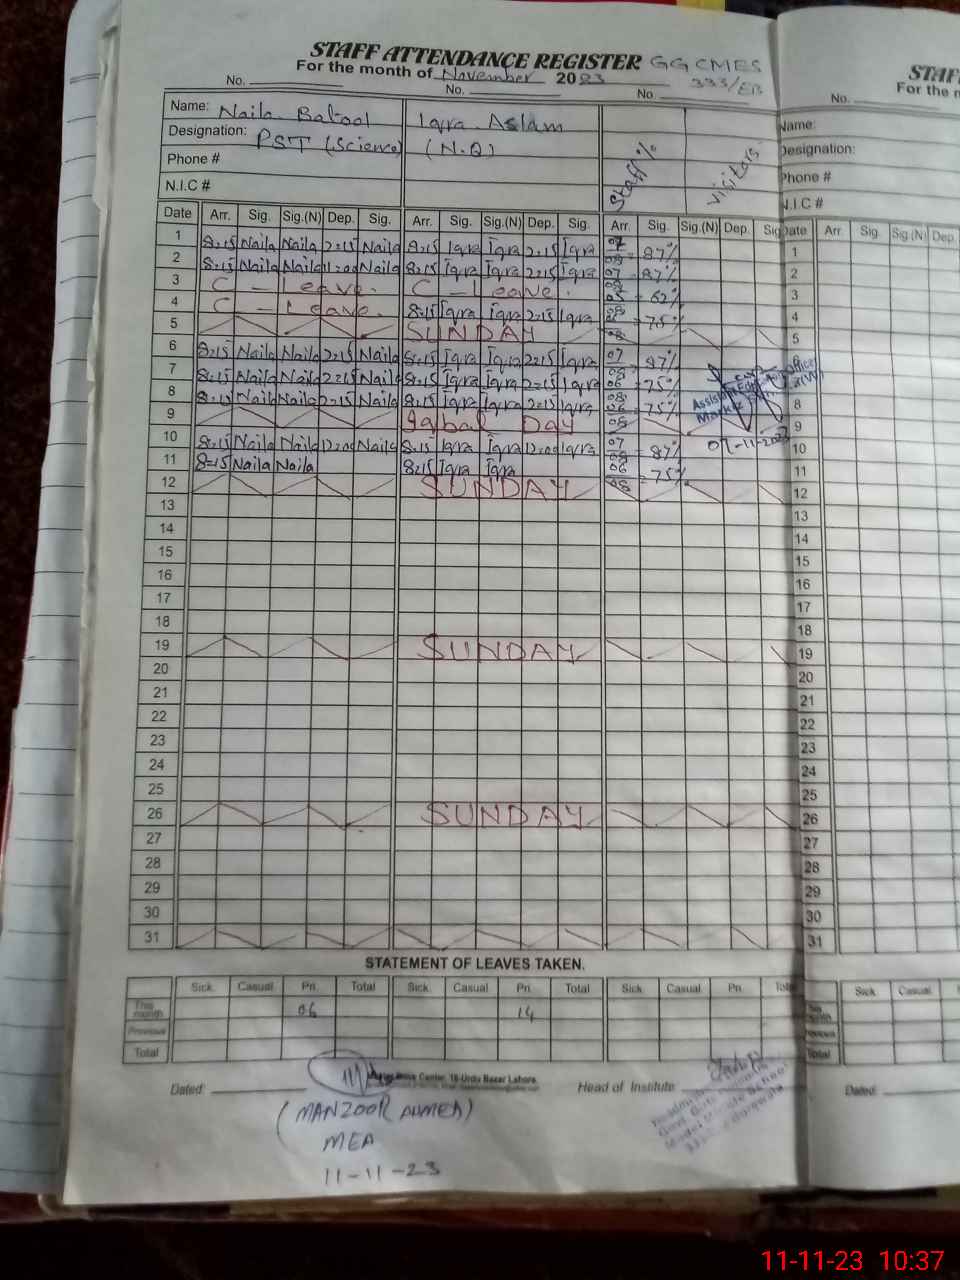 STAFF ATTENDANCE REGISTER GGCMES
For the month of November 2023 333/EB
No. No. No.
Name: Naila Batool Iqra Aslam
Designation: PST (Science) (N.Q)
Phone #
N.I.C #
Staff % Visitors
Date Arr. Sig. Sig.(N) Dep. Sig. Arr. Sig. Sig.(N) Dep. Sig. Arr. Sig. Sig.(N) Dep. Sig
1 8:15 Naila Naila 2:15 Naila 8:15 Iqra Iqra 2:15 Iqra 07/08 = 87%
2 8:15 Naila Naila 12:00 Naila 8:15 Iqra Iqra 2:15 Iqra 07/08 = 87%
3 C - Leave. C - Leave. 05/08 = 62%
4 C - Leave. 8:15 Iqra Iqra 2:15 Iqra 06/08 = 75%
5 SUNDAY
6 8:15 Naila Naila 2:15 Naila 8:15 Iqra Iqra 2:15 Iqra 07/08 = 87%
7 8:15 Naila Naila 2:15 Naila 8:15 Iqra Iqra 2:15 Iqra 06/08 = 75%
8 8:15 Naila Naila 2:15 Naila 8:15 Iqra Iqra 2:15 Iqra 06/08 = 75%
9 Iqbal Day
07-11-2023
10 8:15 Naila Naila 12:00 Naila 8:15 Iqra Iqra 12:00 Iqra 07/08 = 87%
11 8:15 Naila Naila 8:15 Iqra Iqra 06/08 = 75%
12 SUNDAY
13
14
15
16
17
18
19 SUNDAY
20
21
22
23
24
25
26 SUNDAY
27
28
29
30
31
STATEMENT OF LEAVES TAKEN.
Sick Casual Pri. Total Sick. Casual Pri. Total Sick. Casual Pri. Total
This month 06 14
Previous
Total
Dated: Center, 16-Urdu Bazar Lahore Head of Institute
(MANZOOR AHMED)
MEA
11-11-23
STAF
For the n
No.
Name:
Designation:
Phone #
N.I.C #
Date Arr. Sig. Sig.(N) Dep.
1
2
3
4
5
6
8
9
10
11
12
13
14
15
16
17
18
19
20
21
22
23
24
25
26
27
28
29
30
31
Sick Casual
Total
Dated:
11-11-23 10:37